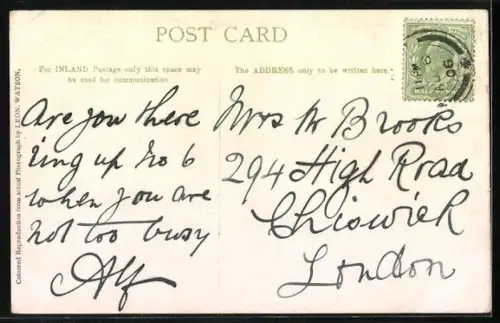 POST CARD
For INLAND Postage only this space may
be used for communication
The ADDRESS only to be written here
Are you there
Ring up No 6
when you are
not too busy
Alf
Mrs W Brooks
294 High Road
Chiswick
London
Coloured Reproduction from actual Photograph by LEON. WATSON.